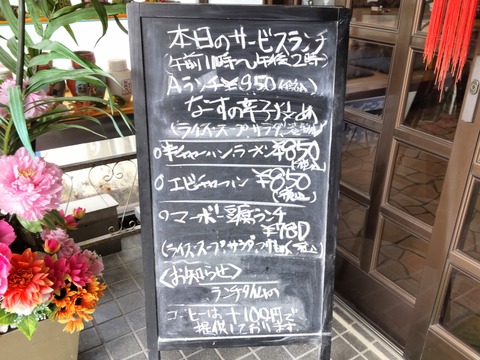 本日のサービスランチ
(午前11時〜午後2時)
Aランチ ¥950(税込)
なすの辛子炒め
(ライス、スープ、サラダ
○半チャーハン、ラーメン ¥850
(税込)
○エビチャーハン ¥850
(税込)
○マーボー豆腐ランチ
¥780
(ライス、スープ、サラダ、
<お知らせ>
ランチタイムの
コーヒーは+100円で
提供しております